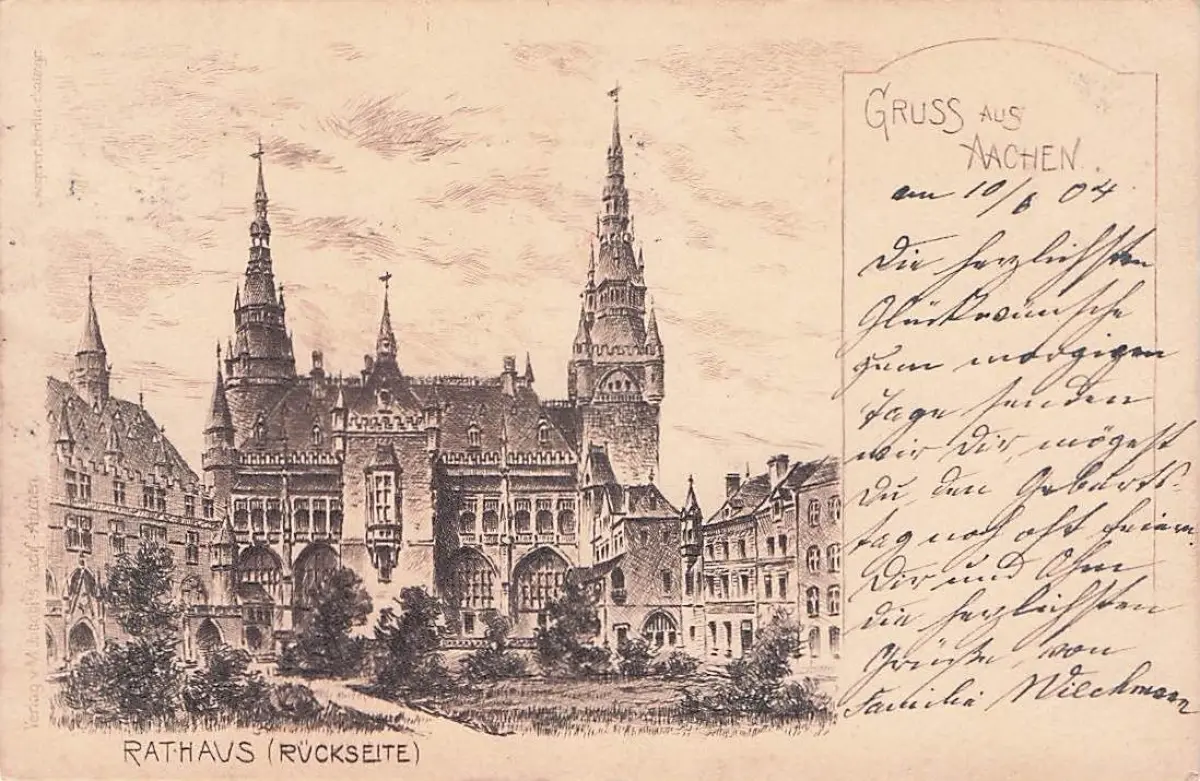 GRUSS AUS
AACHEN.
am 10/6 04.
Die herzlichsten
Glückwünsche
zum morgigen
Tage senden
wir Dir, mögest
Du den Geburts-
tag noch oft feiern.
Dir und Ohm
die herzlichsten
Grüße, von
Familie Wiechmann
RATHAUS (RÜCKSEITE)
Verlag v.